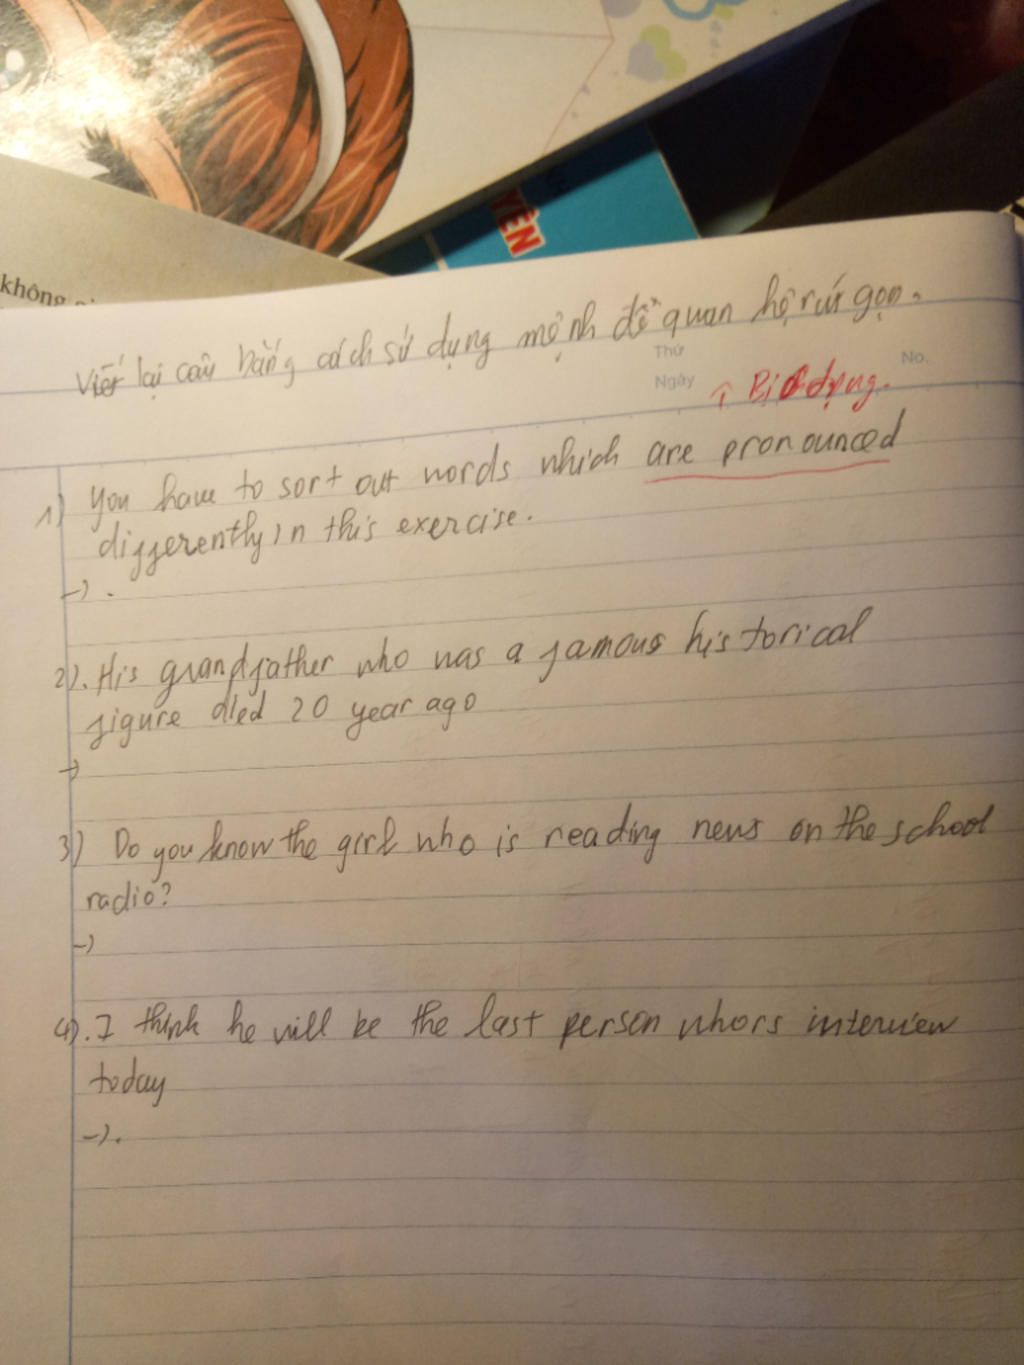 YÊN
không
Viết lại câu bằng cách sử dụng mệnh đề quan hệ rút gọn.
Thứ
Ngày
No.
↑ Bị động.
1) You have to sort out words which are pronounced
differently in this exercise.
→ .
2). His grandfather who was a famous historical
figure died 20 year ago
→
3) Do you know the girl who is reading news on the school
radio?
→
4). I think he will be the last person who's interview
today
→ .